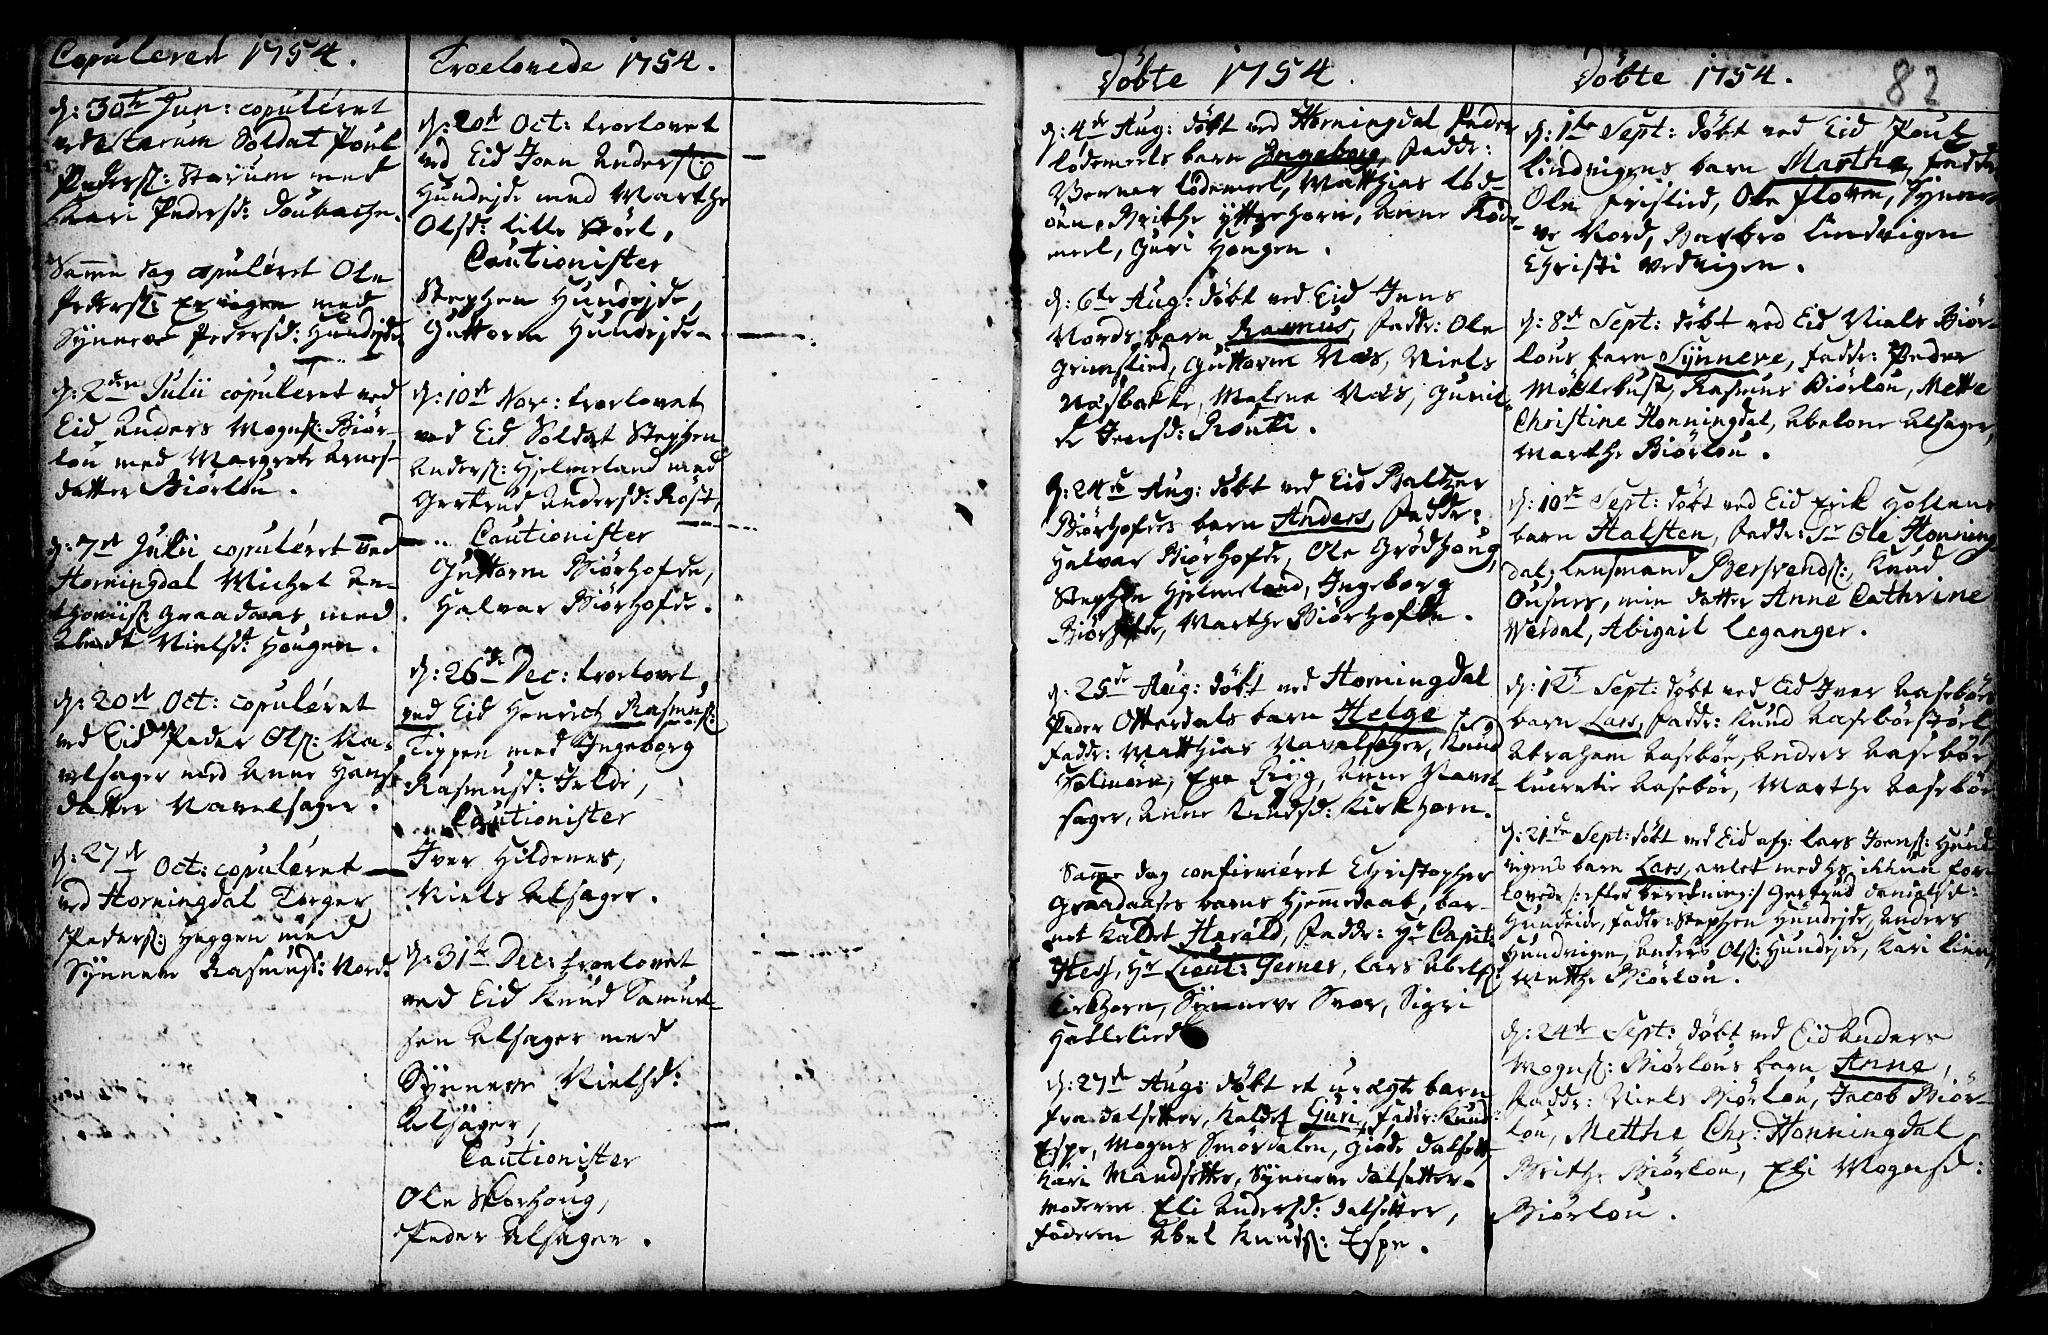 Copuleret 1754.
d: 30te Jun: copuleret
ved Starum Soldat Poul
Peders: Starum med
Kari Pedersd: Doubache.
Samme dag copuleret Ole
Peders: Ervigen med
Synneve Pedersd: Hundejde
d: 2den Julii copuleret ved
Eid Anders Mogns: Biør-
lou med Margrete Arnes-
datter Biørlou.
d: 7de Julii copuleret ved
Horningdal Michel An-
thoniis: Graadaas, med
Nielsd: Hougen.
d: 20de Oct: copuleret
ved Eid Peder Ols: Na-
velsager med Anne Hans-
datter Navelsager.
d: 27de Oct: copuleret
ved Horningdal Torger
Peders: Heggen med
Synneve Rasmusd: Nord.
Troelovede 1754.
d: 20de Oct: troelovet
ved Eid Joen Anders:
Hundejde med Marthe
Olsd: lille Støel,
Cautionister
Stephen Hundejde,
Guttorm Hundejde
d: 10de Nov: troelovet
ved Eid Soldat Stephen
Anders: Hjelmeland med
Gertrud Andersd: Røst,
Cautionister
Guttorm Biørhofde,
Halvar Biørhofde.
d: 26de Dec: troelovet
ved Eid Henrich Rasmus:
Tippen med Ingeborg
Rasmusd: Hilde,
Cautionister
Iver Hildenes,
Niels Alsager.
d: 31te Dec: troelovet
ved Eid Knud Samuel-
sen Alsager med
Synneve Nielsd:
Alsager,
Cautionister
Ole Skarhoug,
Peder Alsager.
Døbte 1754.
d: 4de Aug: døbt ved Horningdal Peder
Lødemels barn Ingeborg, Fadd:
Verner Lødemel, Matthias Lød-
Brithe Yttrehorn, Anne Lødе-
meel, Guri Hougen.
d: 6te Aug: døbt ved Eid Jens
Nords barn Rasmus, Fadd: Ole
Grimstied, Guttorm Næs, Niels
Næsbakke, Malene Næs, Gunil-
de Jensd:
d: 24de Aug: døbt ved Eid Baltzer
Biørhofdes barn Anders, Fadd:
Halvar Biørhofde, Ole Grødhoug,
Stephen Hjelmeland, Ingeborg
Biørhofde, Marthe Biørhofde.
d: 25de Aug: døbt ved Horningdal
Peder Otterdals barn Helge
Fadd: Matthias Navelsager, Knud
Holmøen, Eva Ryg, Anne Navel-
sager, Anne Knudsd: Kirkhorn.
Samme dag confirmeret Christopher
Graadaases barns hjemmedaab, bar-
net kaldet Harald, Fadd: Hr Capit:
Hess, Hr Lieut: Gernes, Lars Abels:
Kirkhorn, Synneve Svor, Sigri
Hattelied
d: 27de Aug: døbt et uægte barn
fra Dalsetter, kaldet Guri, Fadd: Knud
Espe, Mogns Smørdalen, Giøde Dalsett
Kari Maudsetter, Synneve Dalsetter
Moderen Eli Andersd: Dalsetter,
faderen Abel Knuds: Espe.
Døbte 1754. 82
d: 1te Sept: døbt ved Eid Poul
Lindvigens barn Marthe, fadd:
Ole Frislied, Ole Floten, Synne-
ve Nord, Barbro Lindvigen
Christi Vedvigen.
d: 8de Sept: døbt ved Eid Niels Biør-
lous barn Synneve, fadd: Peder
Møklebust, Rasmus Biørlou, Mette
Christine Honningdal, Abelone Alsager,
Marthe Biørlou.
d: 10de Sept: døbt ved Eid Erik Holtens
barn Halsten, Fadd: Sr Ole Honning
dal, Lensmand Bersvends:, Knud
Ousnes, min datter Anne Cathrine
Werdal, Abigail Leganger.
d: 12te Sept: døbt ved Eid Iver Aasebøes
barn Lars, Fadd: Knud Aasebøestøel,
Abraham Aasebøe, Anders Aasebøe,
Lucretie Aasebøe, Marthe Aasebøe
d: 21de Sept: døbt ved Eid afg: Lars Joens: Hund
vigens barn Lars, avlet med hs: Enken for-
lovede /: efter beretning :/ Gertrud Danielsd:
Hundeide, Fadd: Stephen Hundejde, Anders
Hundvigen, Anders Ols: Hundejde, Kari Lien,
Marthe Biørlou.
d: 24de Sept: døbt ved Eid Anders
Mogns: Biørlous barn Anne,
Fadd: Niels Biørlou, Jacob Biør-
lou, Metthe Chr: Honningdal
Brithe Biørlou, Eli Mognsd:
Biørlou.